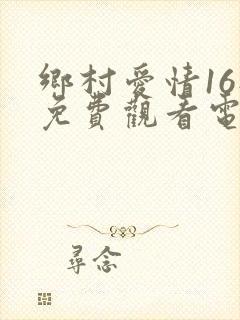 鄉村愛情16
免費觀看電
尋念